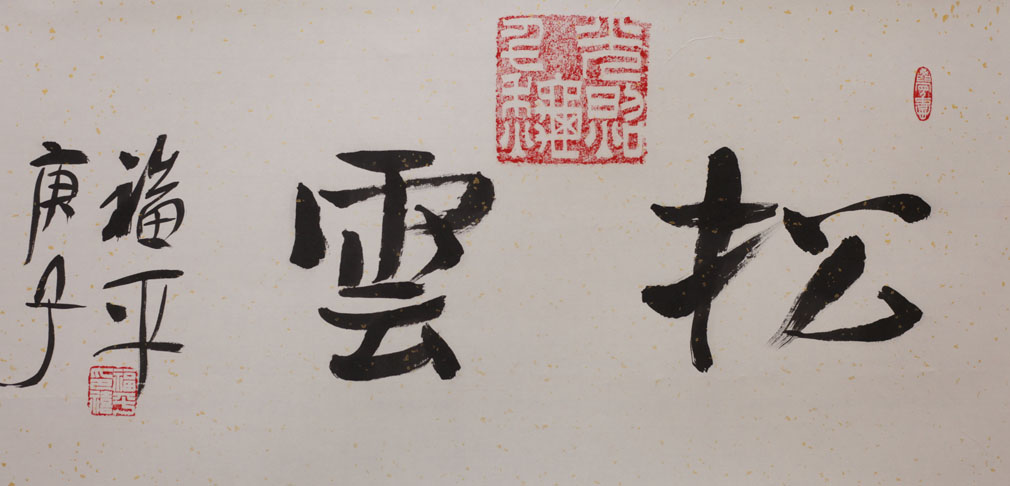 松雲
福平
庚子